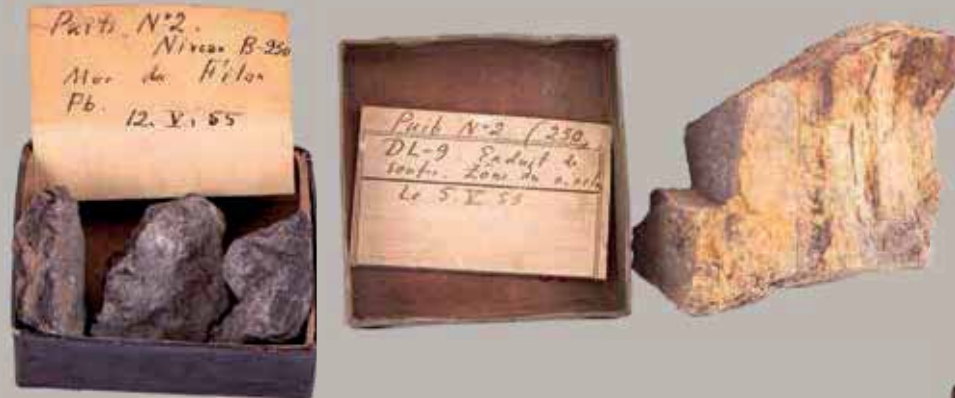 Puits N°2.
Niveau B-250
Mur du Filon
Pb.
12. V. 55
Puits N°2 (250)
DL-9 Enduit de
Zone du
Le 5. V 55